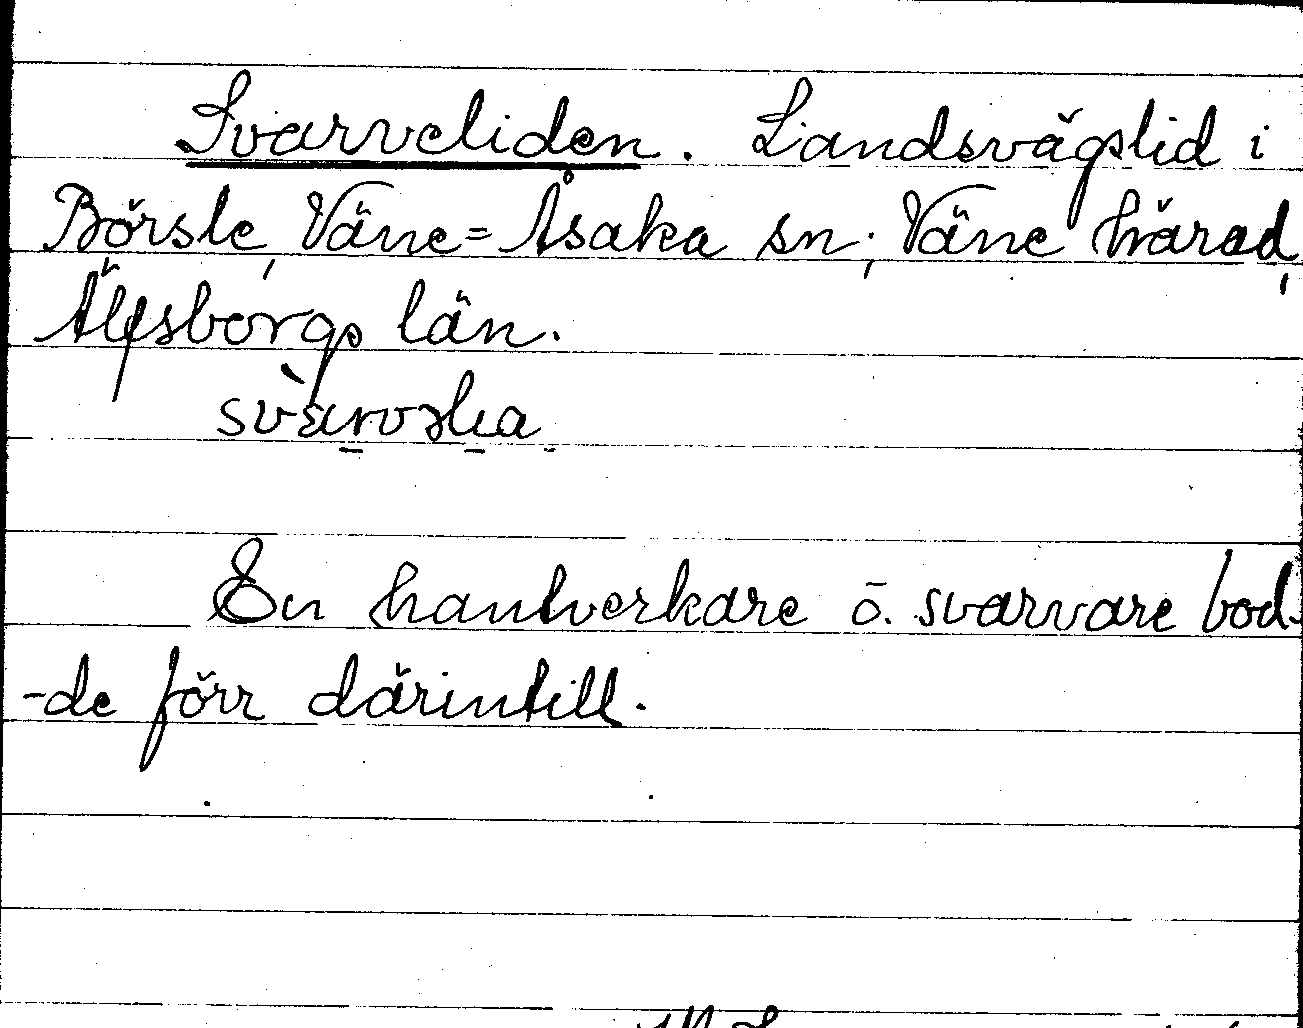 Svarveliden. Landsvägslid i
Börsle, Väne=Åsaka sn; Väne härad,
Älfsborgs län.
En hantverkare ō. svarvare bod-
-de förr därintill.